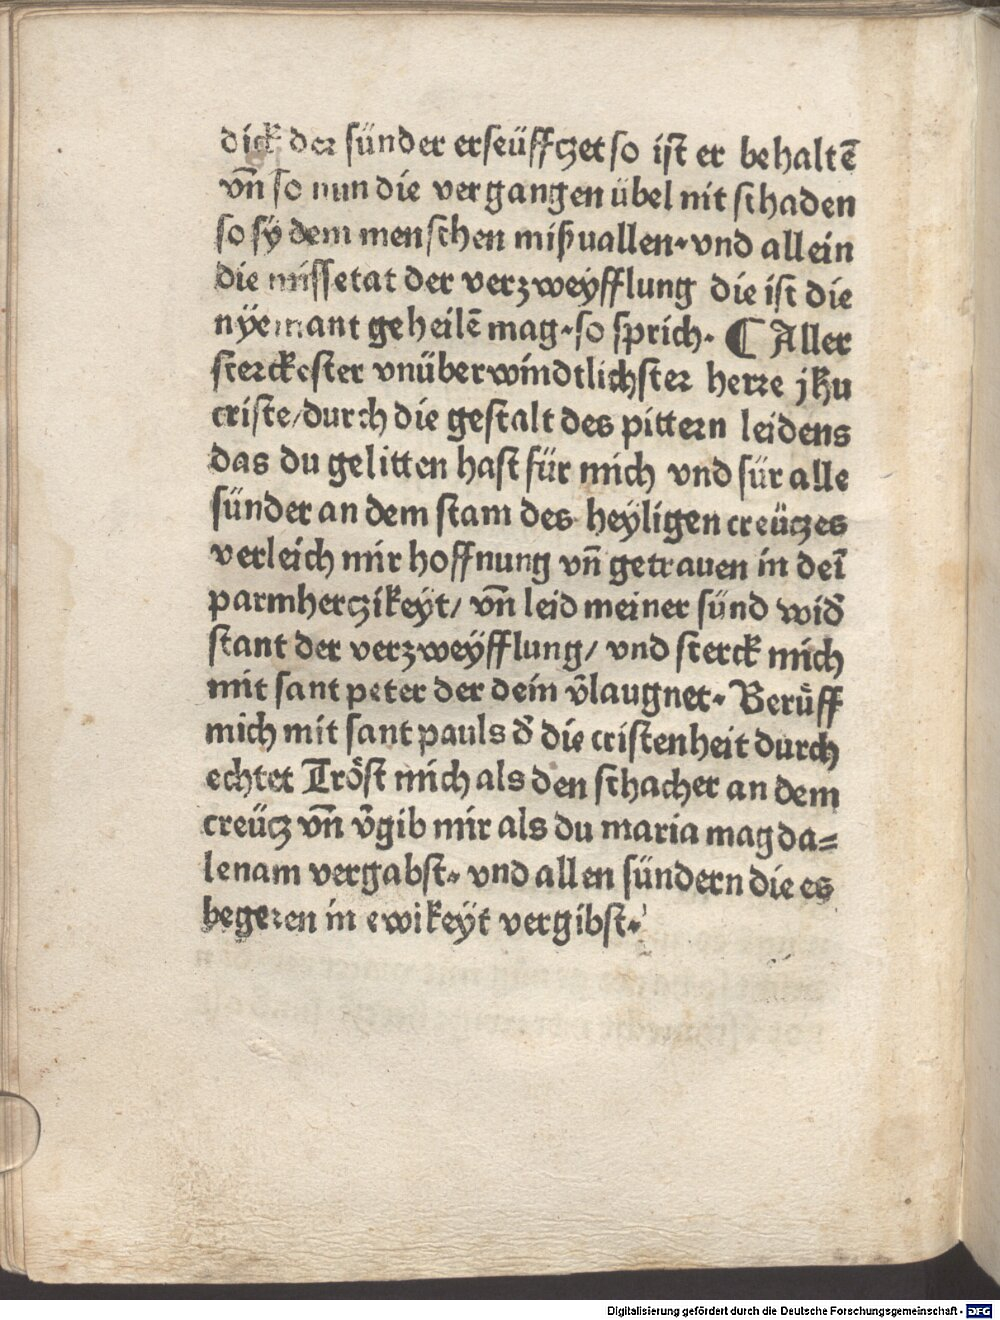 dick der sünder erseüffczet so ist er behaltē
vn̄ so nun die vergangen übel nit schaden
so sÿ dem menschen mißuallen. vnd allein
die missetat der verzweyfflung die ist die
nÿemant geheilē mag. so sprich. ¶ Aller
sterckester vnüberwindtlichster herre jhu
criste/ durch die gestalt des pittern leidens
das du gelitten hast für mich vnd für alle
sünder an dem stam des heÿligen creüczes
verleich mir hoffnung vn̄ getrauen in deī
parmherczikeÿt/ vn̄ leid meiner sünd wid̄
stant der verzweÿfflung/ vnd sterck mich
mit sant peter der dein v̄laugnet. Berůff
mich mit sant pauls d̄ die cristenheit durch
echtet Tröst mich als den schacher an dem
creücz vn̄ v̄gib mir als du maria magda=
lenam vergabst. vnd allen sündern die es
begeren in ewikeÿt vergibst.
Digitalisierung gefördert durch die Deutsche Forschungsgemeinschaft - DFG